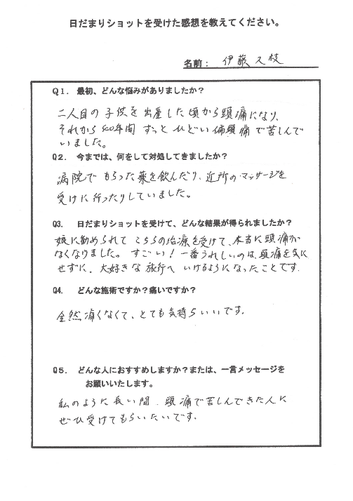 日だまりショットを受けた感想を教えてください。
名前： 伊藤久枝
Q1． 最初、どんな悩みがありましたか？
二人目の子供を出産した頃から頭痛になり、
それから 年間 ずっと ひどい偏頭痛で苦しんで
いました。
Q2． 今までは、何をして対処してきましたか？
病院で もらった薬を飲んだり、近所のマッサージを
受けに行ったりしていました。
Q3． 日だまりショットを受けて、どんな結果が得られましたか？
娘に勧められて こちらの治療を受けて、本当に頭痛が
なくなりました。すごい！一番うれしいのは、頭痛を気に
せずに、大好きな旅行へ いけるようになったことです。
Q4． どんな施術ですか？痛いですか？
全然痛くなくて、とても気持ちいいです。
Q5． どんな人におすすめしますか？または、一言メッセージを
お願いいたします。
私のように長い間、頭痛で苦しんできた人に
ぜひ受けてもらいたいです。